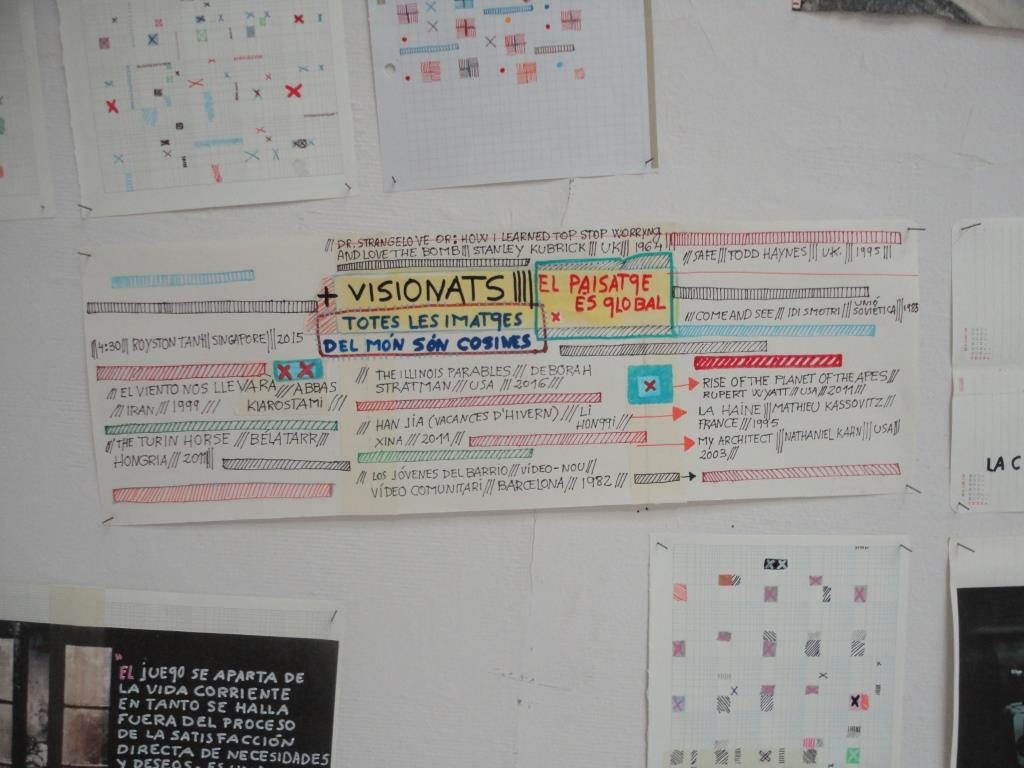 /// DR. STRANGELOVE OR: HOW I LEARNED TOP STOP WORRYNG
AND LOVE THE BOMB /// STANLEY KUBRICK /// UK /// 1964
+ VISIONATS ||||
TOTES LES IMATGES
DEL MÓN SÓN COSINES
EL PAISATGE
ES GLOBAL
/// 4:30 /// ROYSTON TAN /// SINGAPORE /// 2015
/// EL VIENTO NOS LLEVARA /// ABBAS
/// IRAN /// 1999 /// KIAROSTAMI ///
/// THE TURIN HORSE /// BELATARR ///
HONGRIA /// 2011 ///
/// THE ILLINOIS PARABLES /// DEBORAH
STRATMAN /// USA /// 2016 ///
/// HAN JIA (VACANCES D'HIVERN) /// LI
XINA /// 2011 /// HONGQI ///
/// LOS JÓVENES DEL BARRIO /// VÍDEO-NOU ///
VÍDEO COMUNITARI /// BARCELONA /// 1982 ///
/// SAFE /// TODD HAYNES /// UK. /// 1995 ///
/// COME AND SEE /// IDI SMOTRI /// UNIÓ
SOVIÈTICA /// 1985
RISE OF THE PLANET OF THE APES ///
RUPERT WYATT /// USA /// 2011 ///
LA HAINE /// MATHIEU KASSOVITZ ///
FRANCE /// 1995
MY ARCHITECT /// NATHANIEL KAHN /// USA ///
2003 ///
LA C
"EL JUEGO SE APARTA DE
LA VIDA CORRIENTE
EN TANTO SE HALLA
FUERA DEL PROCESO
DE LA SATISFACCIÓN
DIRECTA DE NECESIDADES
Y DESEOS.